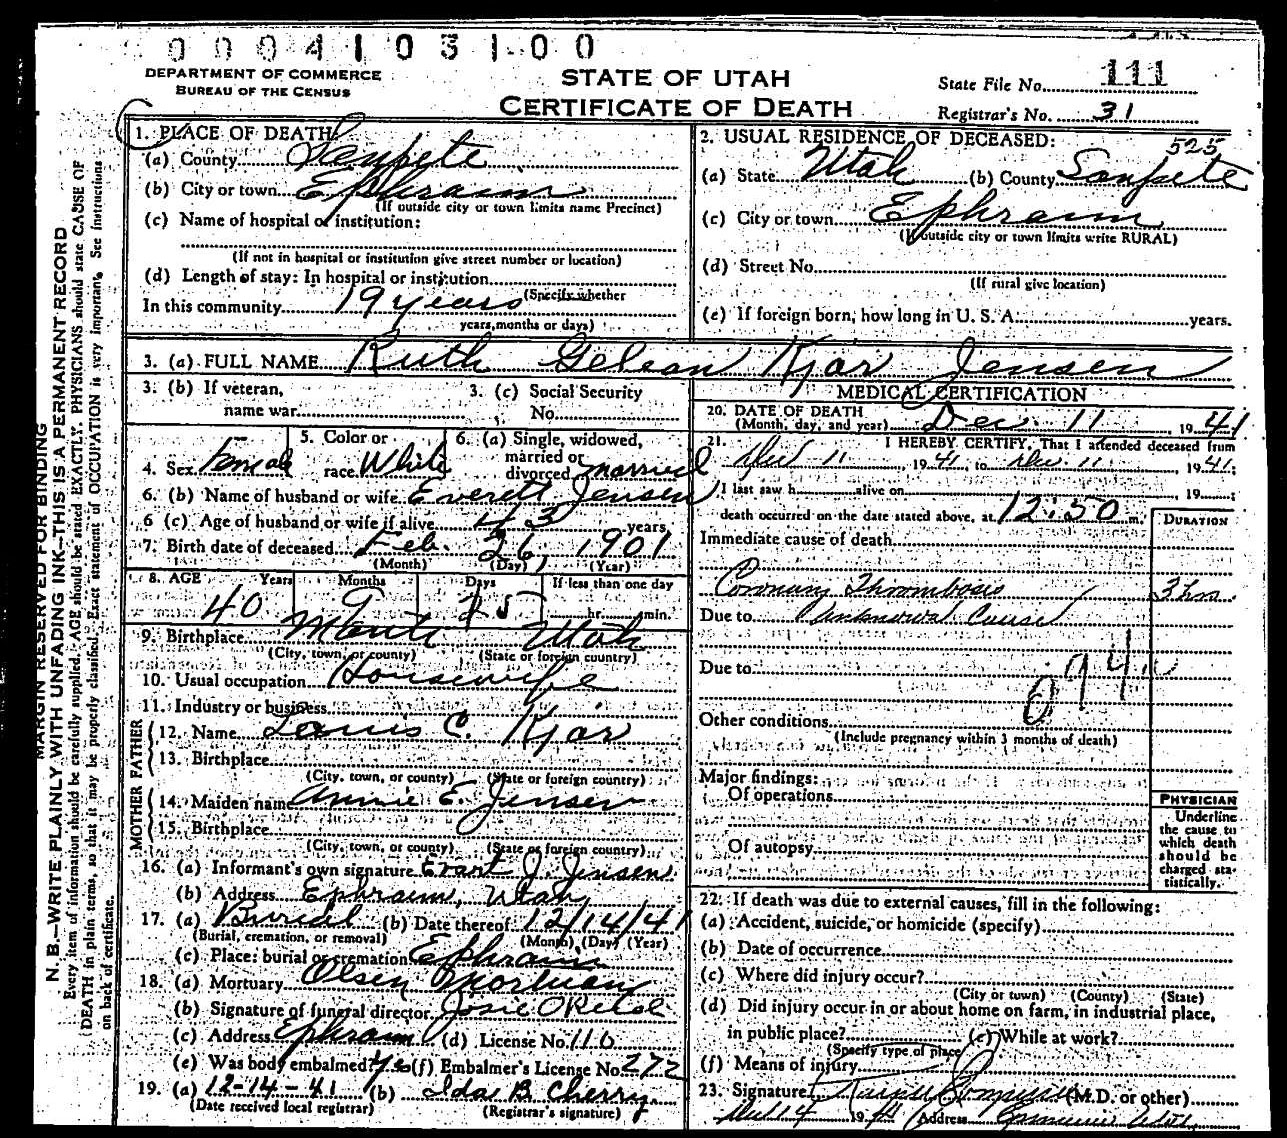 0004103100
DEPARTMENT OF COMMERCE
BUREAU OF THE CENSUS
STATE OF UTAH
CERTIFICATE OF DEATH
State File No. 111
Registrar's No. 31
MARGIN RESERVED FOR BINDING
N. B.—WRITE PLAINLY WITH UNFADING INK—THIS IS A PERMANENT RECORD
Every item of information should be carefully supplied. AGE should be stated EXACTLY. PHYSICIANS should state CAUSE OF
DEATH in plain terms, so that it may be properly classified. Exact statement of OCCUPATION is very important. See instructions
on back of certificate.
1. PLACE OF DEATH
(a) County Sanpete
(b) City or town Ephraim
(If outside city or town limits name Precinct)
(c) Name of hospital or institution:
(If not in hospital or institution give street number or location)
(d) Length of stay: In hospital or institution
(Specify whether
In this community 19 years
years, months or days)
2. USUAL RESIDENCE OF DECEASED: 525
(a) State Utah (b) County Sanpete
(c) City or town Ephraim
(If outside city or town limits write RURAL)
(d) Street No.
(If rural give location)
(e) If foreign born, how long in U. S. A. years.
3. (a) FULL NAME Ruth Kjar Jensen
3. (b) If veteran,
name war
3. (c) Social Security
No.
4. Sex Female
5. Color or
race White
6. (a) Single, widowed,
married or
divorced married
6. (b) Name of husband or wife Everett Jensen
6 (c) Age of husband or wife if alive 43 years
7. Birth date of deceased Feb. 26, 1901
(Month) (Day) (Year)
8. AGE Years Months Days If less than one day
40 9 15 hr. min.
9. Birthplace Manti Utah
(City, town, or county) (State or foreign country)
10. Usual occupation Housewife
11. Industry or business
FATHER
12. Name Louis C. Kjar
13. Birthplace
(City, town, or county) (State or foreign country)
MOTHER
14. Maiden name Annie E. Jensen
15. Birthplace
(City, town, or county) (State or foreign country)
16. (a) Informant's own signature Evart J. Jensen
(b) Address Ephraim, Utah
17. (a) Burial (b) Date thereof 12/14/41
(Burial, cremation, or removal) (Month) (Day) (Year)
(c) Place: burial or cremation Ephraim
18. (a) Mortuary Olsen Mortuary
(b) Signature of funeral director Josie
(c) Address Ephraim (d) License No. 110
(e) Was body embalmed? Yes (f) Embalmer's License No. 272
19. (a) 12-14-41 (b) Ida B. Cherry
(Date received local registrar) (Registrar's signature)
MEDICAL CERTIFICATION
20. DATE OF DEATH
(Month, day, and year) Dec 11 1941
21. I HEREBY CERTIFY, That I attended deceased from
Dec 11, 1941 to Dec. 11, 1941;
I last saw h alive on , 19 ;
death occurred on the date stated above, at 12:50 m.
DURATION
Immediate cause of death
Coronary Thrombosis 3 hrs.
Due to Unknown Cause
Due to
094
Other conditions
(Include pregnancy within 3 months of death)
Major findings:
Of operations
Of autopsy
PHYSICIAN
Underline
the cause to
which death
should be
charged sta-
tistically.
22. If death was due to external causes, fill in the following:
(a) Accident, suicide, or homicide (specify)
(b) Date of occurrence
(c) Where did injury occur?
(City or town) (County) (State)
(d) Did injury occur in or about home on farm, in industrial place,
in public place? (e) While at work?
(Specify type of place)
(f) Means of injury
23. Signature (M.D. or other)
14 19 (Address